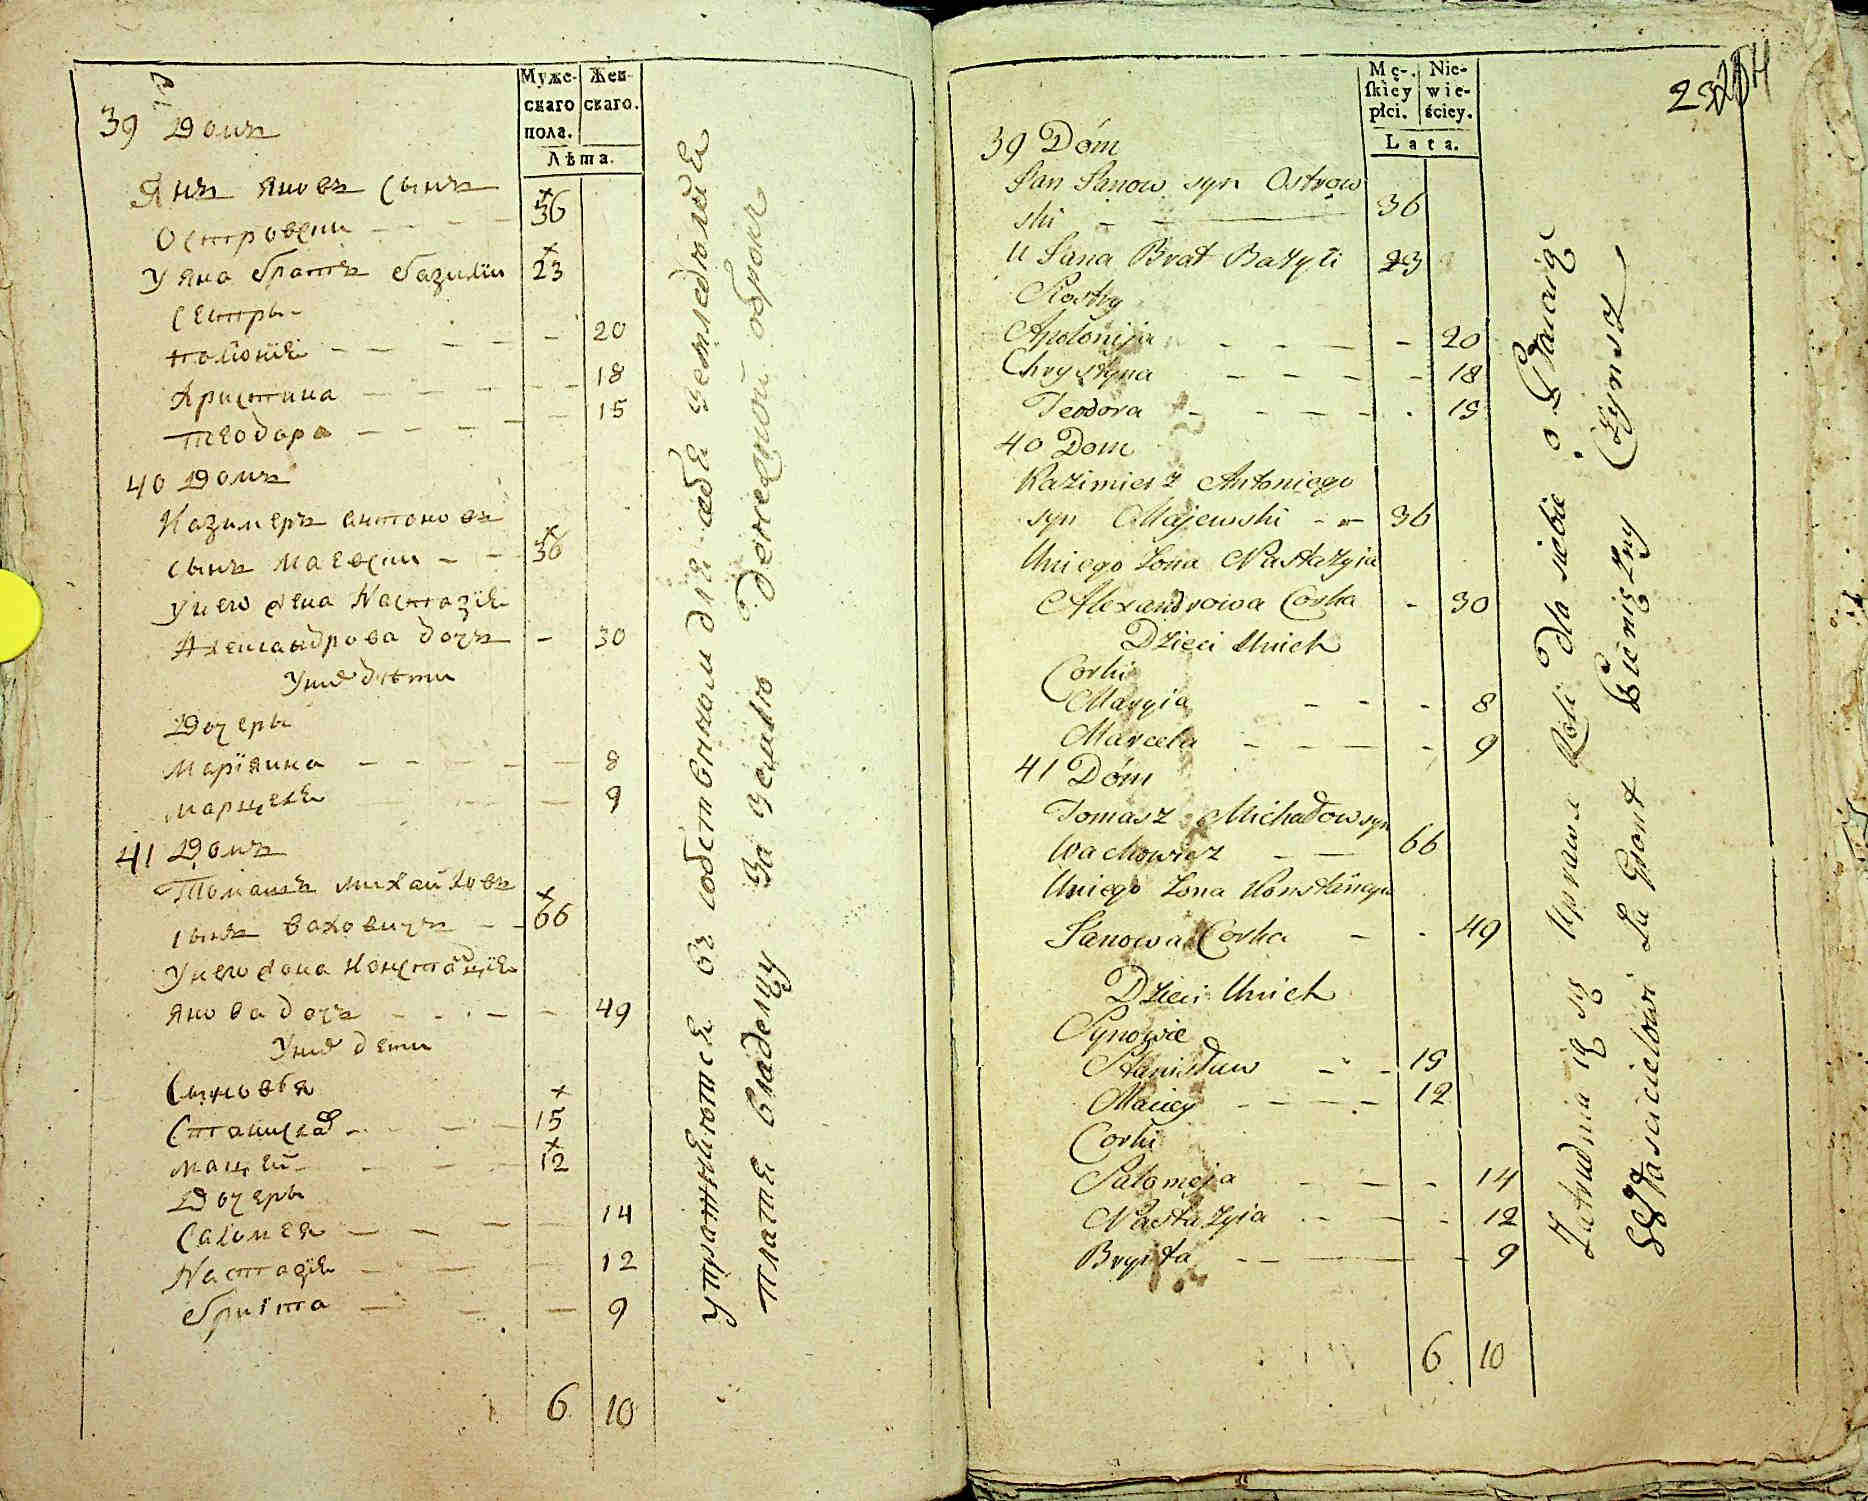 Муже-
скаго
пола.
Жен-
скаго.
Лѣта.
39 Домъ
Янъ Яновъ сынъ
Островски 36
У Яна братъ Базилїи 23
сестры
Полонїя 20
Кристина 18
Теодора 15
40 Домъ
Казимеръ Антоновъ
сынъ Маевски 36
У него жена Настазїя
Александрова дочъ 30
У них дѣти
Дочеры
Марїянна 8
Марцеля 9
41 Домъ
Томашъ Михайловъ
сынъ Ваховичъ 66
У него жона Констанцїя
Янова дочъ 49
У них дети
Сыновья
Станислав 15
Мацей 12
Дочеры
Саломея 14
Настазїя 12
Бригита 9
6 10
упражняются въ собственном для себя земледѣлїя
платя владелцу за землю денежной оброкъ
Mę-
skiey
płci.
Nie-
wie-
ściey.
Lata.
39 Dóm
Jan Janow syn Ostrow
ski 36
U Jana Brat Bazyli 23
Siostry
Apolonija 20
Chrystyna 18
Teodora 15
40 Dom
Kazimierz Antoniego
syn Majewski 36
Uniego Zona Nastazyia
Alexandrowa Corka 30
Dzieci Unich
Corki
Maryia 8
Marcela 9
41 Dóm
Tomasz Michałow syn
Wachowicz 66
Uniego Zona Konstancyia
Janowa Corka 49
Dzieci Unich
Synowie
Stanisław 15
Maciey 12
Corki
Salomeja 14
Nastazyia 12
Bryita 9
6 10
Zatrudnia ią się Uprawą Roli dla siebie
Własicielowi Za Gront Pienięzny Czynsz